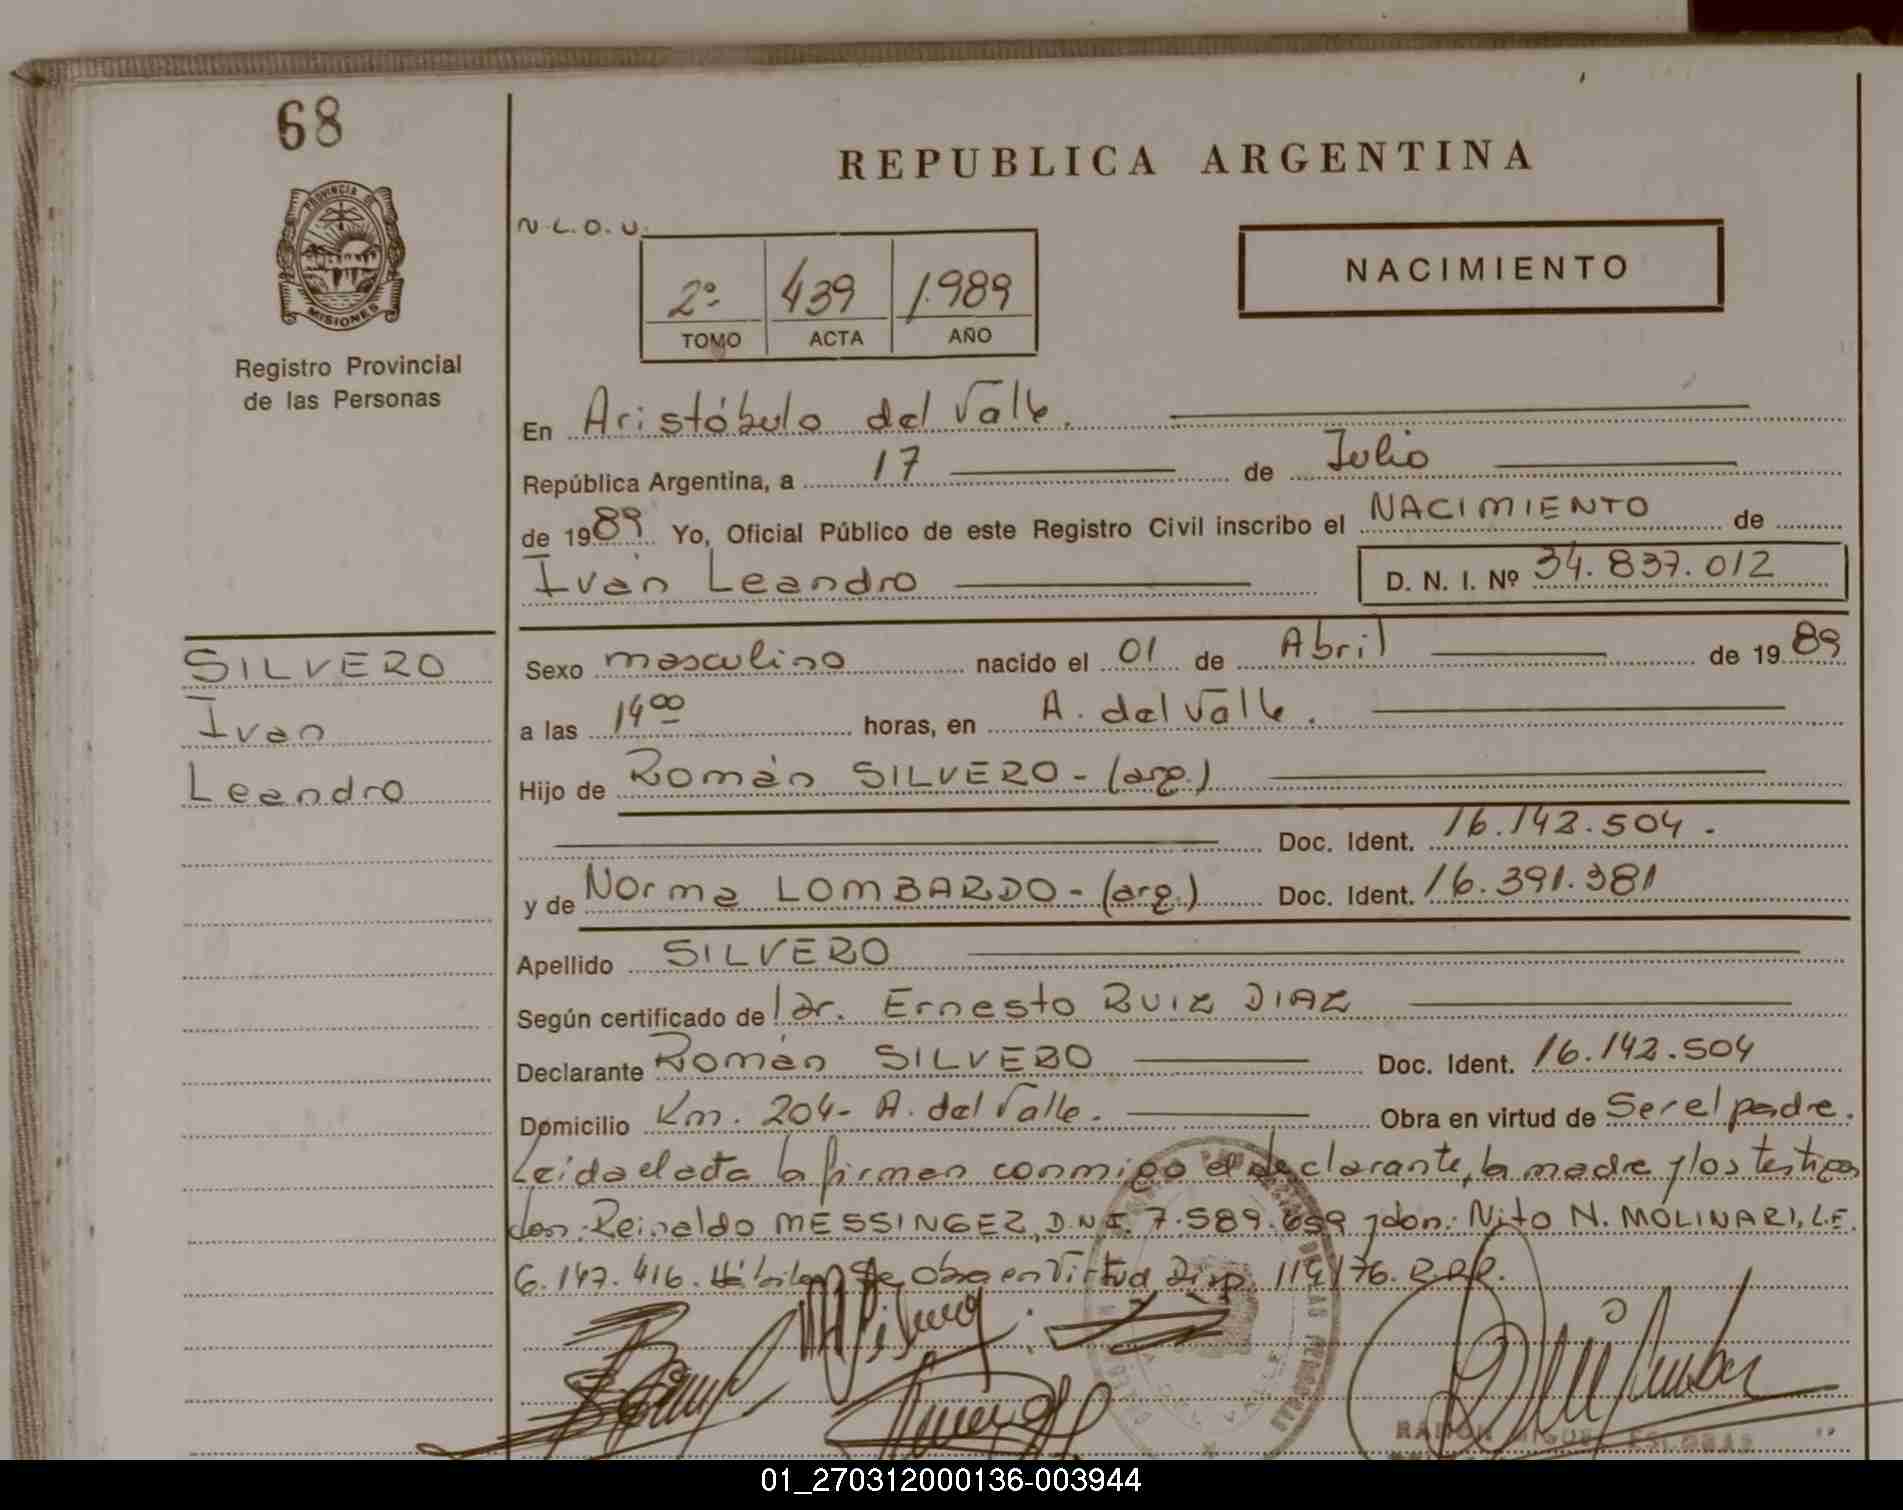 68
PROVINCIA DE
MISIONES
Registro Provincial
de las Personas
REPUBLICA ARGENTINA
N.L.O.U.
2º 439 1.989
TOMO ACTA AÑO
NACIMIENTO
En Aristóbulo del Valle.
República Argentina, a 17 de Julio
de 1989 Yo, Oficial Público de este Registro Civil inscribo el NACIMIENTO de
Iván Leandro D. N. I. Nº 34.837.012
SILVERO
Ivan
Leandro
Sexo masculino nacido el 01 de Abril de 1989
a las 14⁰⁰ horas, en A. del Valle.
Hijo de Román SILVERO - (arg.)
Doc. Ident. 16.142.504.
y de Norma LOMBARDO - (arg.) Doc. Ident. 16.391.381
Apellido SILVERO
Según certificado de Dr. Ernesto RUIZ DIAZ
Declarante Román SILVERO Doc. Ident. 16.142.504
Domicilio Km. 204- A. del Valle. Obra en virtud de Ser el padre.
Leida el acta la firman conmigo el declarante, la madre y los testigos
don: Reinaldo MESSINGER, D.N.I. 7.589.659 y don: Nito N. MOLINARI, L.E.
6.147.416. Hábiles Se obra en Virtud Disp. 114/76. R.P.P.
RAMON MIGUEL ESCOBAR
01_270312000136-003944